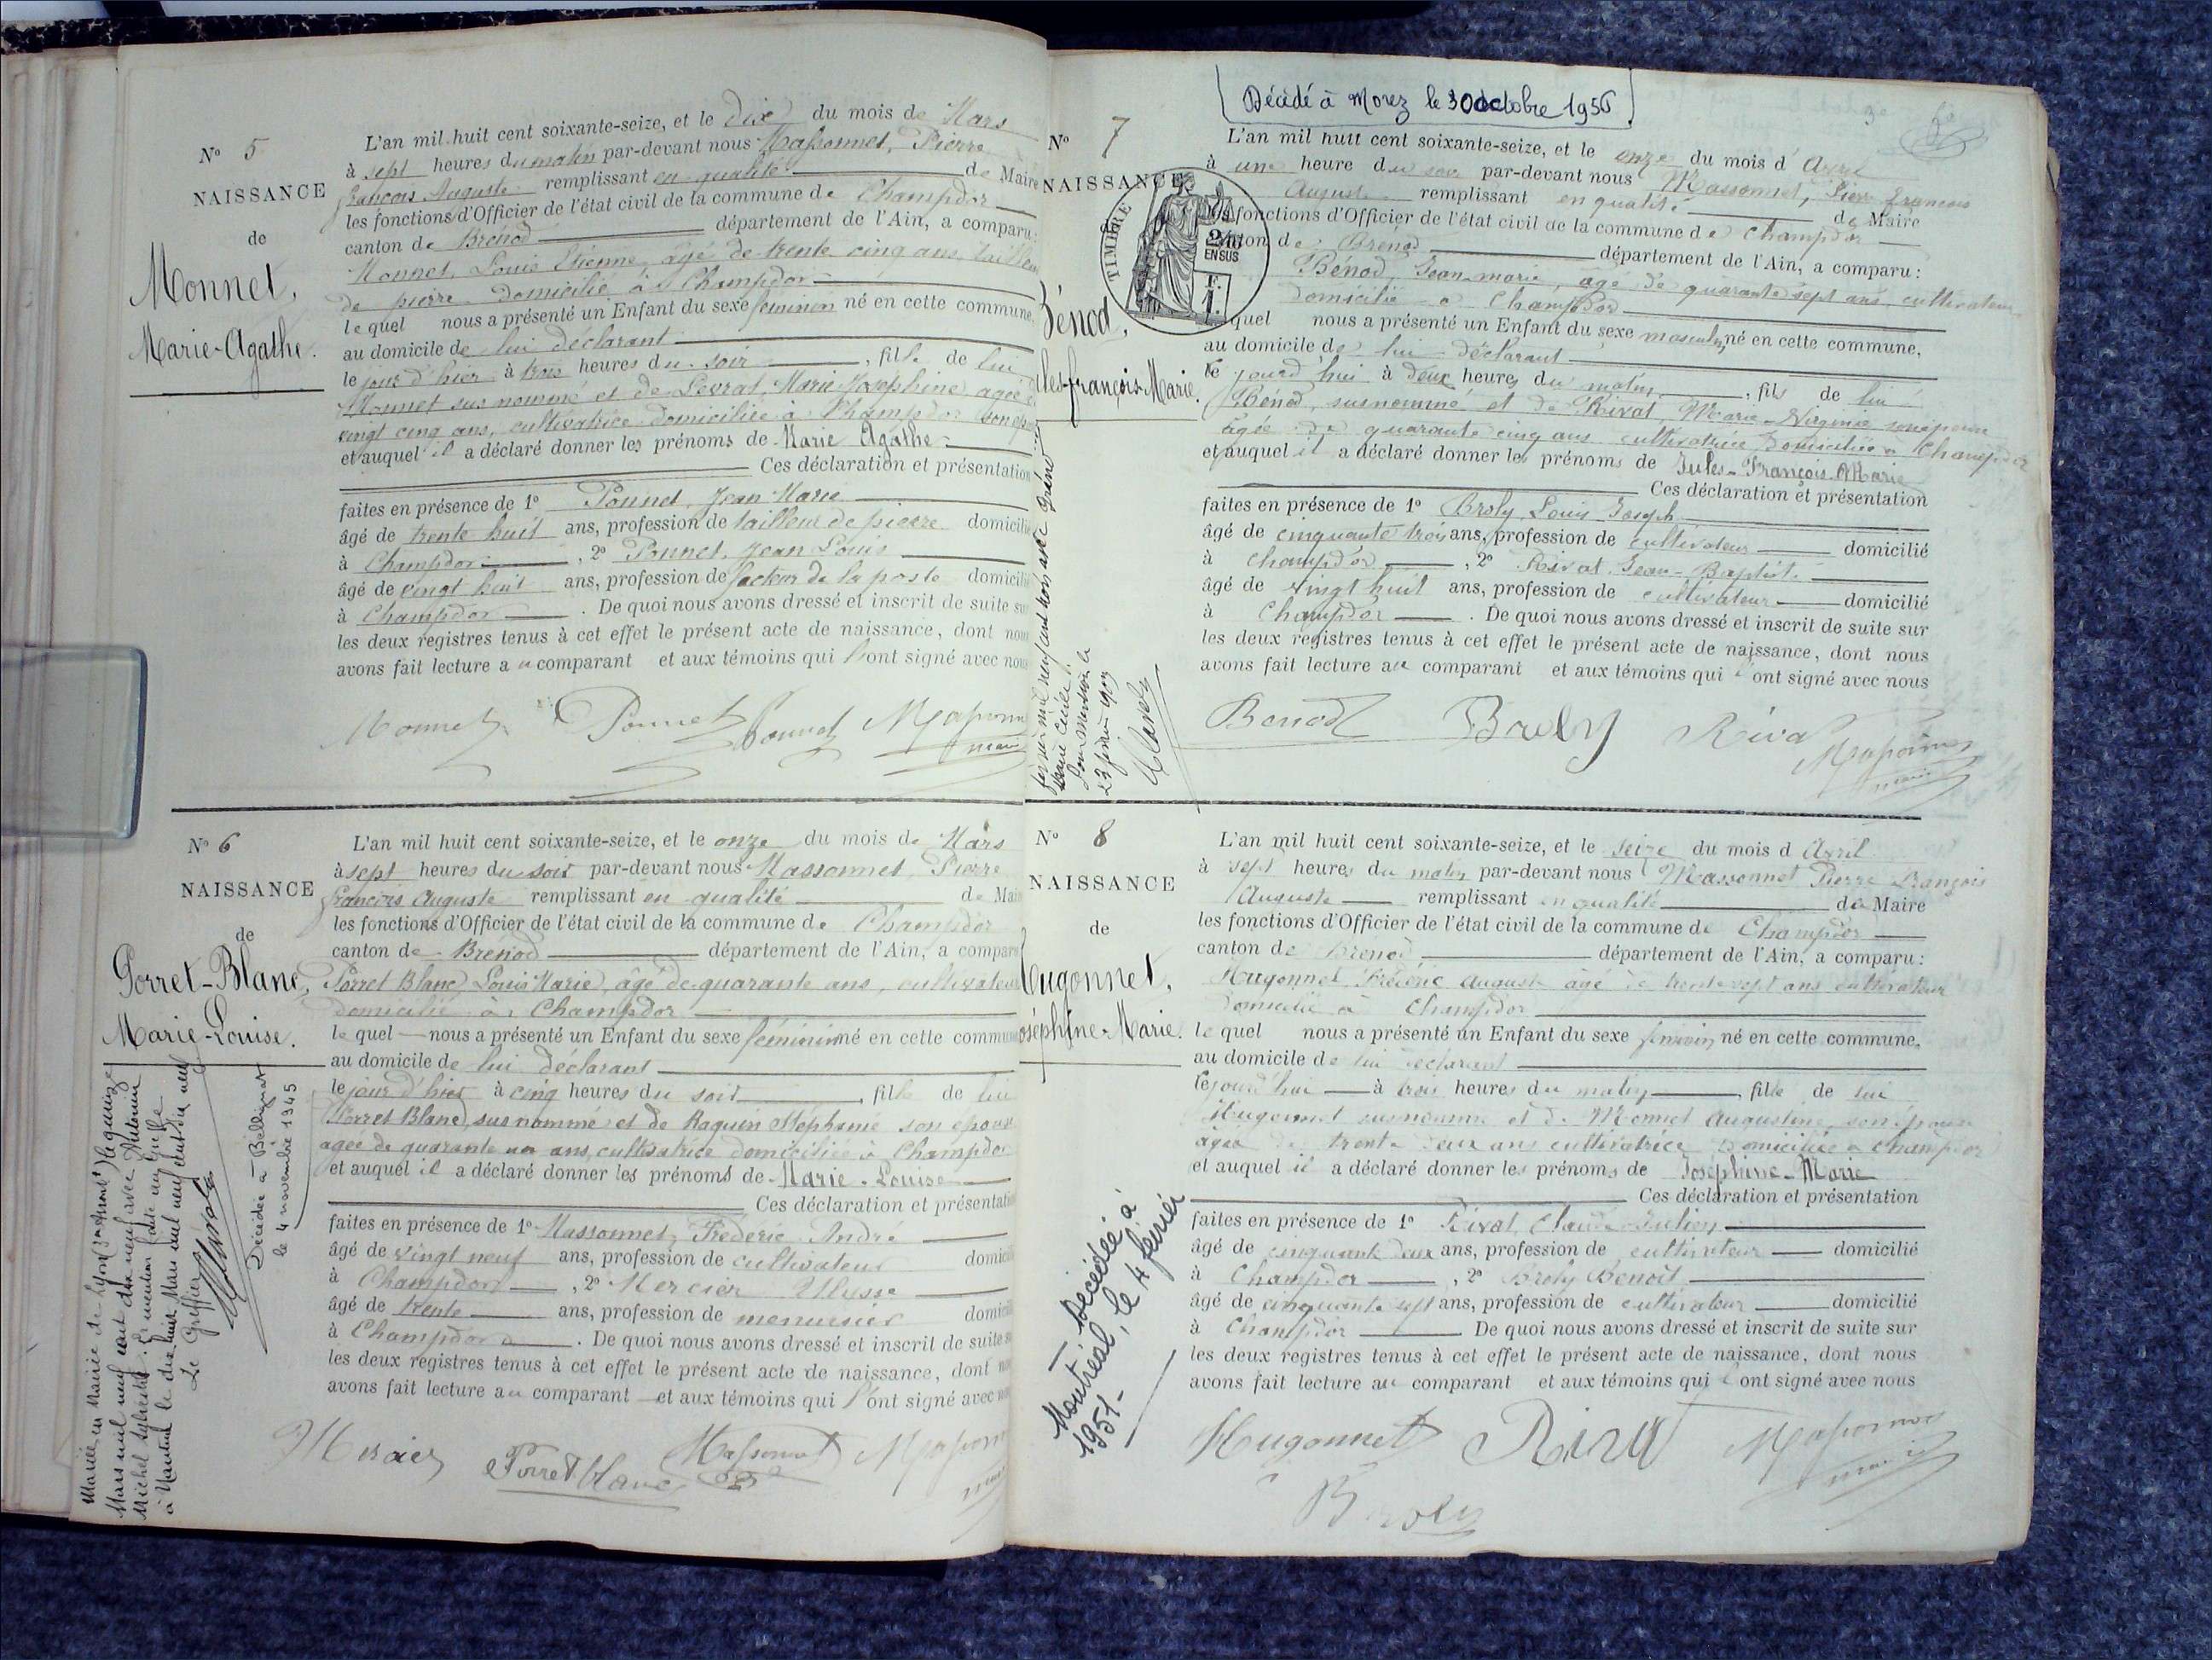 N° 5
NAISSANCE
de
Monnet,
Marie-Agathe.
L'an mil huit cent soixante-seize, et le dix du mois de Mars
à sept heures du matin par-devant nous Massonnet, Pierre
françois Auguste remplissant en qualité de Maire
les fonctions d'Officier de l'état civil de la commune de Champdor
canton de Brénod département de l'Ain, a comparu:
Monnet, Louis Etienne, âgé de trente cinq ans, tailleur
de pierre domicilié à Champdor
le quel nous a présenté un Enfant du sexe féminin né en cette commune,
au domicile de lui déclarant
le jour d'hier à trois heures du soir, fille de lui
Monnet sus nommé et de Levrat, Marie Josephine agée de
vingt cinq ans, cultivatrice domiciliée à Champdor son
et auquel il a déclaré donner les prénoms de Marie Agathe
Ces déclaration et présentation
faites en présence de 1° Ponnet, Jean Marie
âgé de trente huit ans, profession de tailleur de pierre domicilié
à Champdor, 2° Ponnet, Jean Louis
âgé de vingt huit ans, profession de facteur de la poste domicilié
à Champdor. De quoi nous avons dressé et inscrit de suite su
les deux registres tenus à cet effet le présent acte de naissance, dont nou
avons fait lecture au comparant et aux témoins qui l'ont signé avec nous
Monnet Ponnet Ponnet Massonn
maire
N° 6
NAISSANCE
de
Porret-Blanc,
Marie-Louise.
L'an mil huit cent soixante-seize, et le onze du mois de Mars
à sept heures du soir par-devant nous Massonnet, Pierre
françois Auguste remplissant en qualité de Mai
les fonctions d'Officier de l'état civil de la commune de Champdor
canton de Brenod département de l'Ain, a compar
Porret Blanc, Louis Marie, âgé de quarante ans, cultivateur
domicilié à Champdor
le quel nous a présenté un Enfant du sexe féminin né en cette commun
au domicile de lui déclarant
le jour d'hier à cinq heures du soir, fille de lui
Porret Blanc, sus nommé et de Raguin Stephanie son epouse
agée de quarante un ans, cultivatrice domiciliée à Champdor
et auquel il a déclaré donner les prénoms de Marie-Louise
Ces déclaration et présentati
faites en présence de 1° Massonnet, Frédéric André
âgé de vingt neuf ans, profession de cultivateur domici
à Champdor, 2° Mercier Ulysse
âgé de trente ans, profession de menuisier domici
à Champdor. De quoi nous avons dressé et inscrit de suite s
les deux registres tenus à cet effet le présent acte de naissance, dont no
avons fait lecture au comparant et aux témoins qui l'ont signé avec no
Mercier Porret Blanc Massonnet Massonn
Mariée en Mairie de Lyon le quinze
Mars mil neuf cent dix neuf avec Antonin
Michel Sylvestre. mention faite au greffe
à Nantua le dix huit Mars mil neuf cent dix neuf
Le Greffier
Décédée à Bellignat
le 4 novembre 1945
Décédé à Morez le 30 octobre 1956
N° 7
NAISSANCE
TIMBRE
2/10
EN SUS
Bénod,
les-françois-Marie.
L'an mil huit cent soixante-seize, et le onze du mois d'Avril
à une heure du soir par-devant nous Massonnet, Pierre françois
Auguste remplissant en qualité de Maire
les fonctions d'Officier de l'état civil de la commune de Champdor
canton de Brénod département de l'Ain, a comparu:
Bénod, Jean-marie, agé de quarante sept ans, cultivateur
domicilié à Champdor
quel nous a présenté un Enfant du sexe masculin né en cette commune,
au domicile de lui déclarant
le jourd'hui à deux heures du matin, fils de lui
Bénod, susnommé et de Rivat, Marie-Virginie son épouse
âgée de quarante cinq ans cultivatrice domiciliée à Champdor
et auquel il a déclaré donner les prénoms de Jules-François-Marie
Ces déclaration et présentation
faites en présence de 1° Broly, Louis Joseph
âgé de cinquante trois ans, profession de cultivateur domicilié
à Champdor, 2° Rivat Jean-Baptiste
âgé de vingt huit ans, profession de cultivateur domicilié
à Champdor. De quoi nous avons dressé et inscrit de suite sur
les deux registres tenus à cet effet le présent acte de naissance, dont nous
avons fait lecture au comparant et aux témoins qui l'ont signé avec nous
Benod Broly Riva Massonnet
maire
mil neuf cent trois avec
Marie Cécile
Pour mention le
23 1903
N° 8
NAISSANCE
de
Hugonnet,
oséphine-Marie.
L'an mil huit cent soixante-seize, et le seize du mois d'Avril
à sept heures du matin par-devant nous Massonnet Pierre François
Auguste remplissant en qualité de Maire
les fonctions d'Officier de l'état civil de la commune de Champdor
canton de Brenod département de l'Ain, a comparu:
Hugonnet Frédéric Auguste âgé de trente sept ans cultivateur
domicilié à Champdor
le quel nous a présenté un Enfant du sexe féminin né en cette commune,
au domicile de lui déclarant
le jourd'hui à trois heures du matin, fille de lui
Hugonnet susnommé et de Monnet Augustine, son épouse
âgée de trente deux ans cultivatrice domiciliée à Champdor
et auquel il a déclaré donner les prénoms de Joséphine-Marie
Ces déclaration et présentation
faites en présence de 1° Rivat, Claude-Julien
âgé de cinquante deux ans, profession de cultivateur domicilié
à Champdor, 2° Broly Benoît
âgé de cinquante sept ans, profession de cultivateur domicilié
à Champdor. De quoi nous avons dressé et inscrit de suite sur
les deux registres tenus à cet effet le présent acte de naissance, dont nous
avons fait lecture au comparant et aux témoins qui l'ont signé avec nous
Hugonnet Rivat Massonnet
maire
Broly
Décédée à
Montréal, le 4 février
1951-